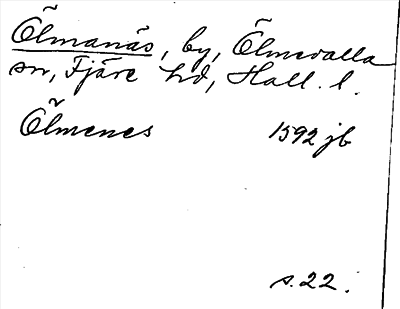 Ölmanäs, by, Ölmevalla
sn, Fjäre hd, Hall. l.
Ölmenes 1592 jb
s. 22.